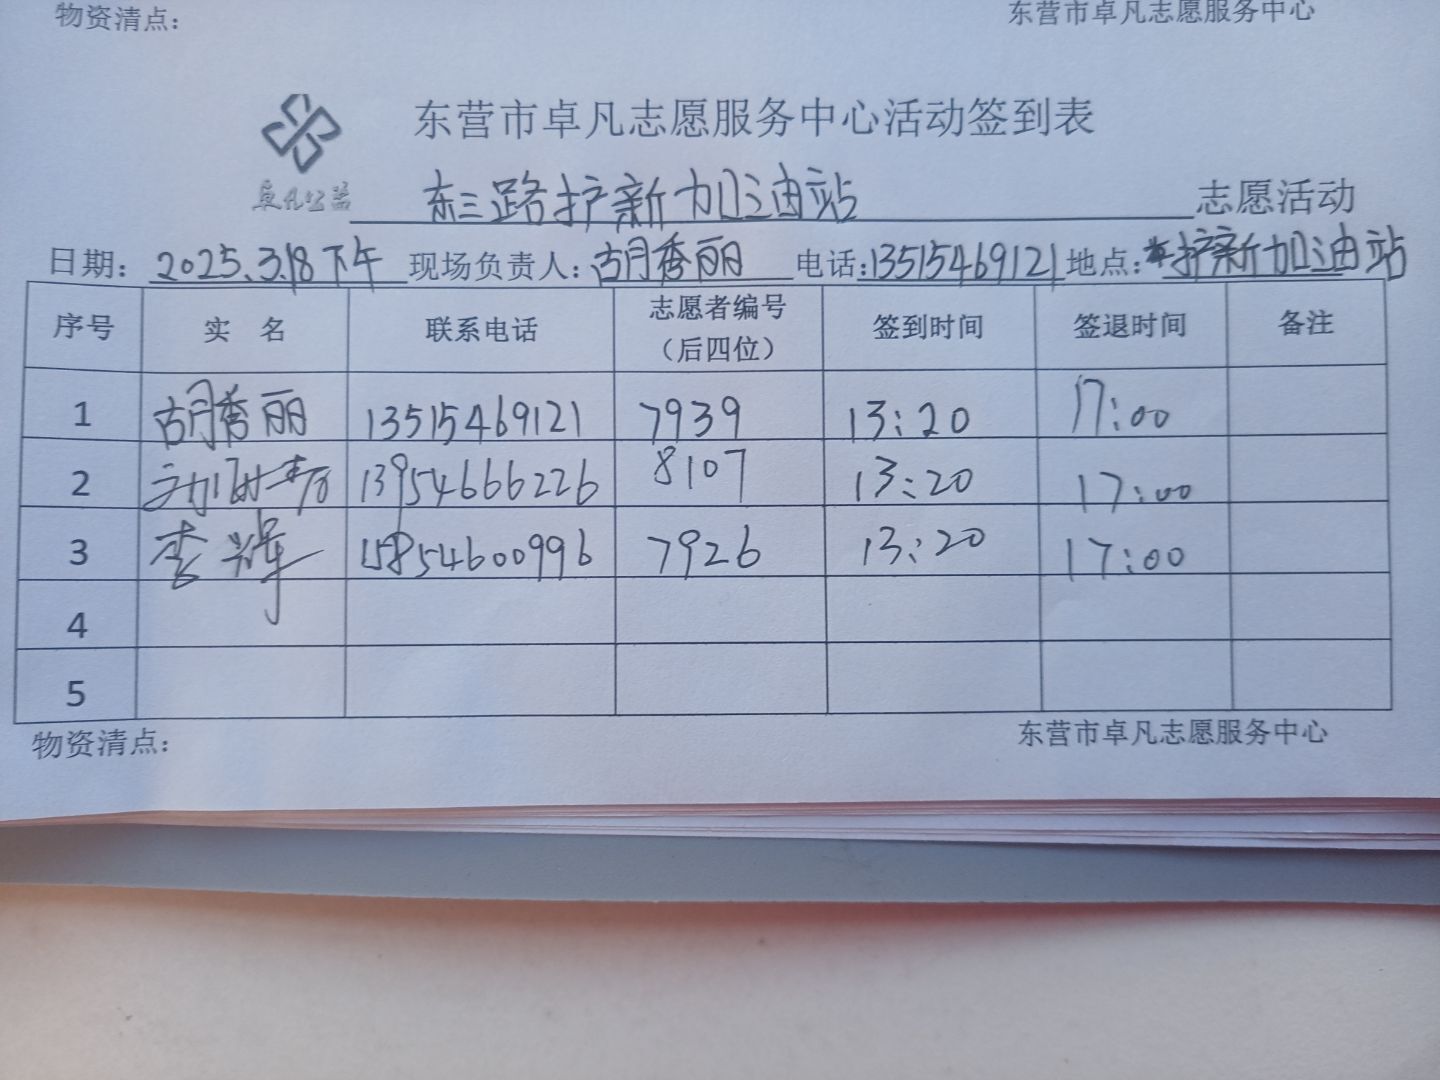 物资清点： 东营市卓凡志愿服务中心
东营市卓凡志愿服务中心活动签到表
卓凡公益 东三路护新加油站 志愿活动
日期：2025.3.18下午 现场负责人：胡秀丽 电话：13515469121 地点：护新加油站
序号 实 名 联系电话 志愿者编号（后四位） 签到时间 签退时间 备注
1 胡秀丽 13515469121 7939 13:20 17:00
2 13954666226 8107 13:20 17:00
3 李辉 15854600996 7926 13:20 17:00
4
5
物资清点： 东营市卓凡志愿服务中心